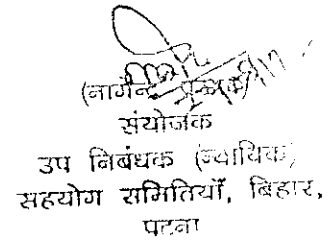 (नागेन्द्र
संयोजक
उप निबंधक (न्यायिक)
सहयोग समितियाँ, बिहार,
पटना